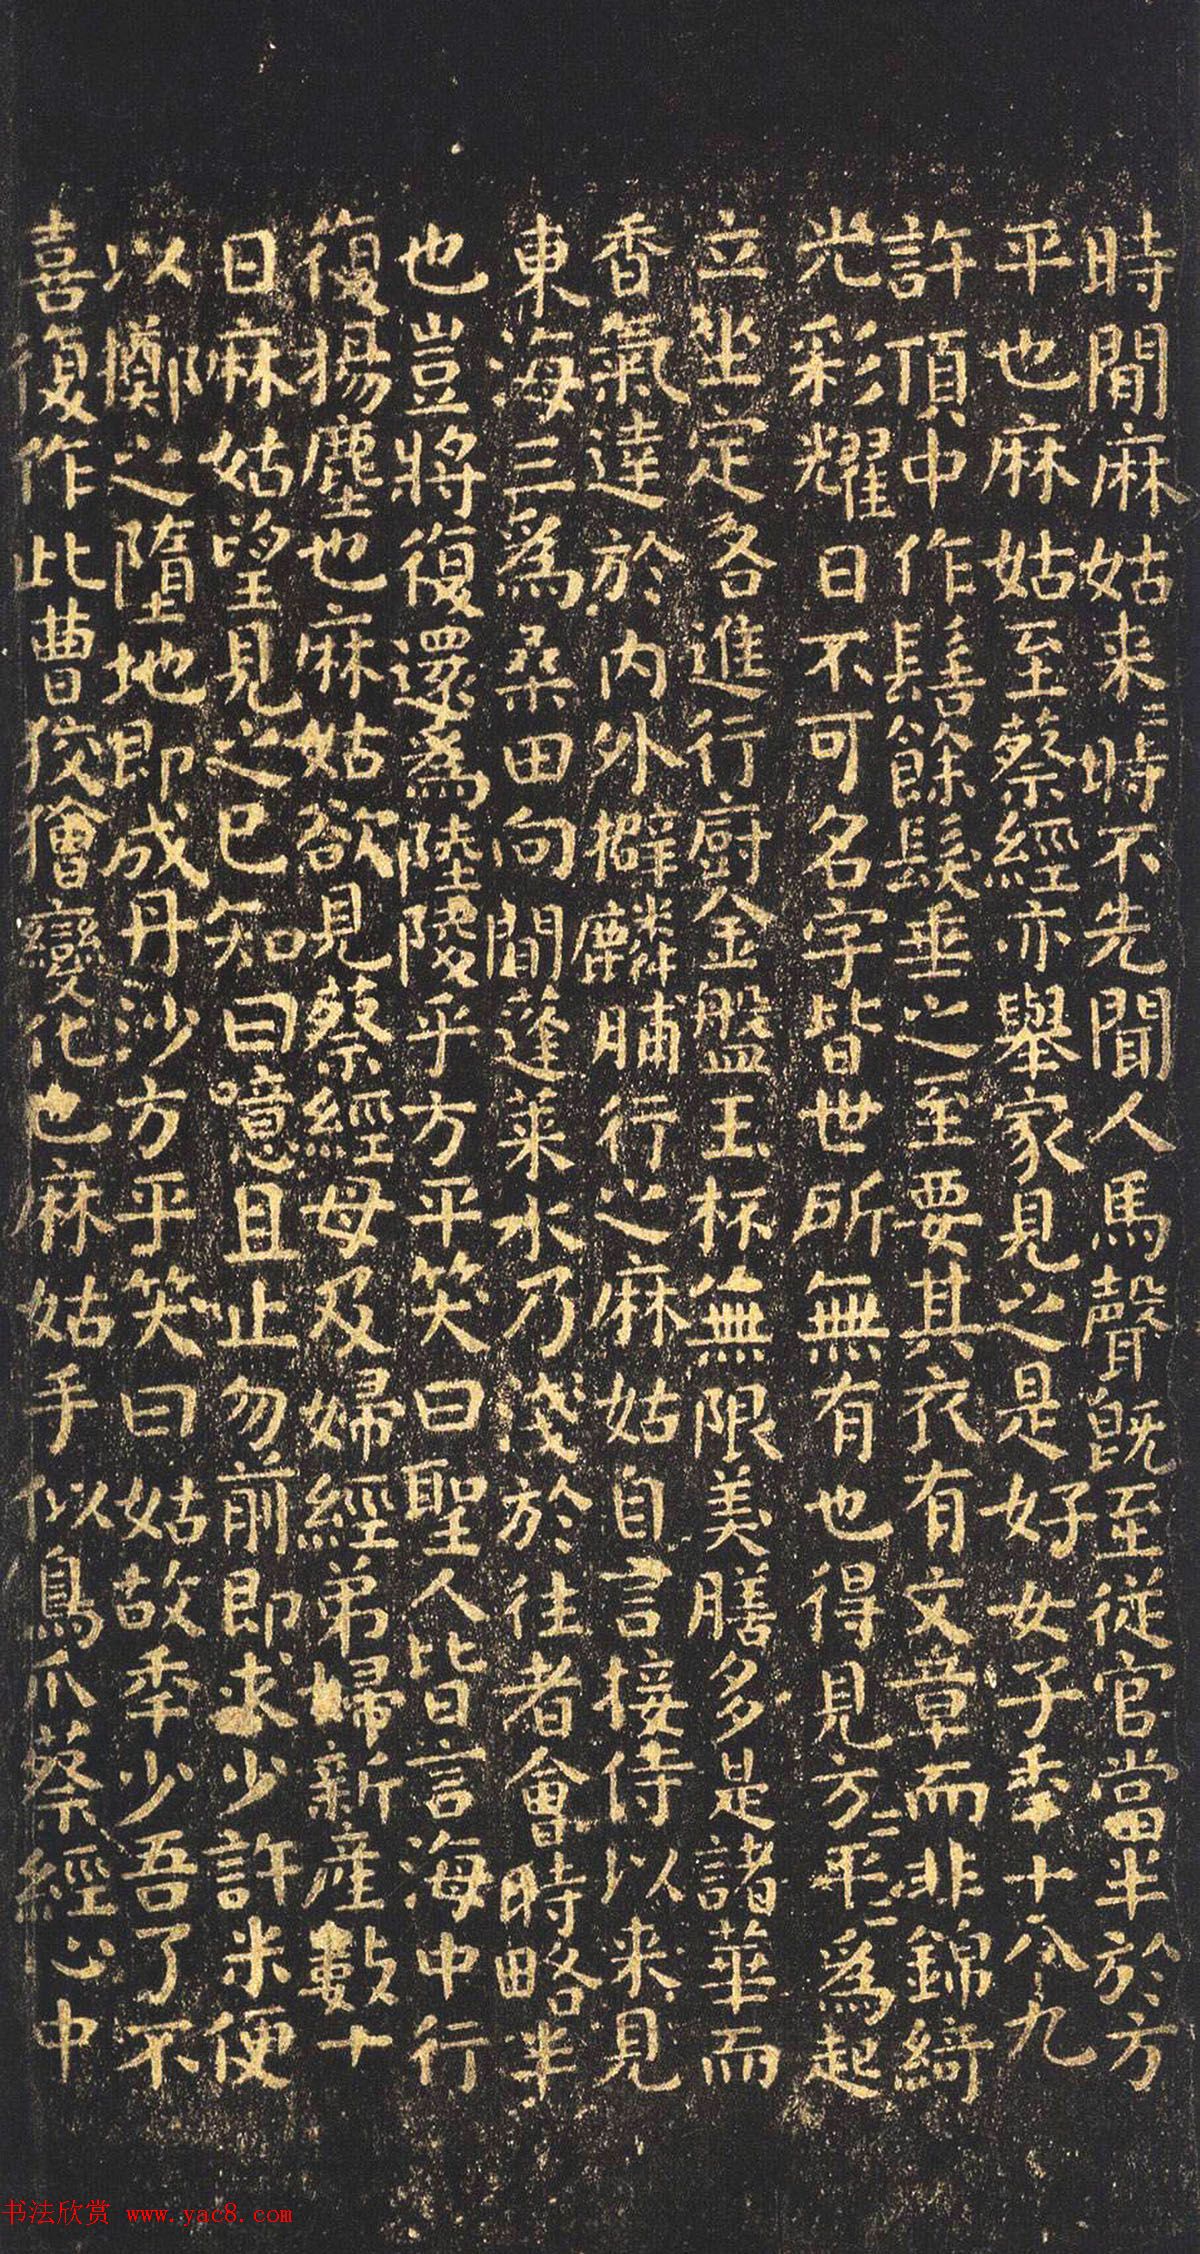 時間麻姑来〻時不先聞人馬聲旣至從官當半於方
平也麻姑至蔡經亦舉家見之是好女子秊十八九
許頂中作髻餘髮垂之至要其衣有文章而非錦綺
光彩耀日不可名字皆世所無有也得見方〻平〻為起
立坐定各進行厨金盤玉杯無限美膳多是諸華而
香氣達於内外擗麟脯行之麻姑自言接侍以来見
東海三為桑田向間蓬萊水乃淺於往者會時略半
也豈將復還為陸陵乎方平笑曰聖人皆言海中行
復揚塵也麻姑欲見蔡經母及婦經弟婦新産數十
日麻姑望見之已知曰噫且止勿前即求少許米便
以擲之墮地即成丹沙方平笑曰姑故秊少吾了不
喜復作此曹狡獪變化也麻姑手似鳥爪蔡經心中
书法欣赏 www.yac8.com